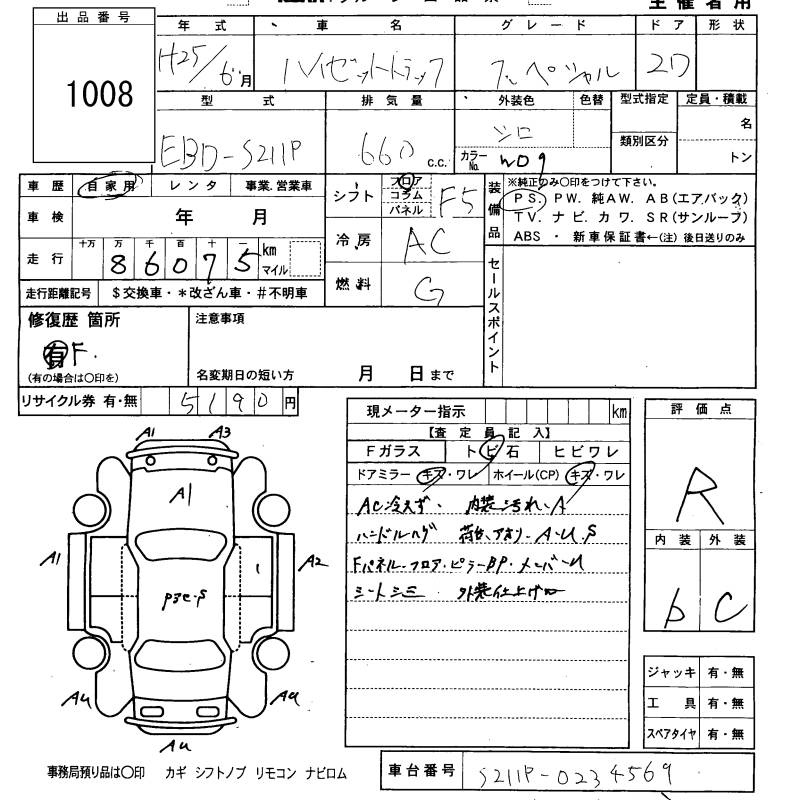 主催者用
出品番号
1008
年式 車名 グレード ドア 形状
H25/6月 ハイゼットトラック スペシャル 2D
型式 排気量 外装色 色替 型式指定 定員・積載
類別区分
名
トン
EBD-S211P 660 c.c. シロ
カラーNo. W09
車歴 自家用 レンタ 事業.営業車
車検 年 月
走行 十万 万 千 百 十 一
8 6 0 7 5 km マイル
走行距離記号 $交換車・*改ざん車・#不明車
シフト フロア コラム パネル F5
冷房 AC
燃料 G
装備品
※純正のみ○印をつけて下さい。
PS. PW. 純AW. AB(エアバック)
TV. ナビ. カワ. SR(サンルーフ)
ABS ・ 新車保証書←(注)後日送りのみ
セールスポイント
修復歴 箇所
有 F.
(有の場合は○印を)
注意事項
名変期日の短い方 月 日まで
リサイクル券 有・無 5190円
現メーター指示 km
【査定員記入】
Fガラス トビ石 ヒビワレ
ドアミラー キズ・ワレ ホイール(CP) キズ・ワレ
AC冷えず. 内装汚れ.A
ハンドルハゲ 荷台.アオリ-A.U.S
Fパネル-フロア.ピラーBP.メンバーU
シートシミ 外装仕上げ
評価点
R
内装 外装
b C
ジャッキ 有・無
工具 有・無
スペアタイヤ 有・無
A1 A3
A1
A1 A2
AU AU
AU
事務局預り品は○印 カギ シフトノブ リモコン ナビロム
車台番号 S211P-0234569